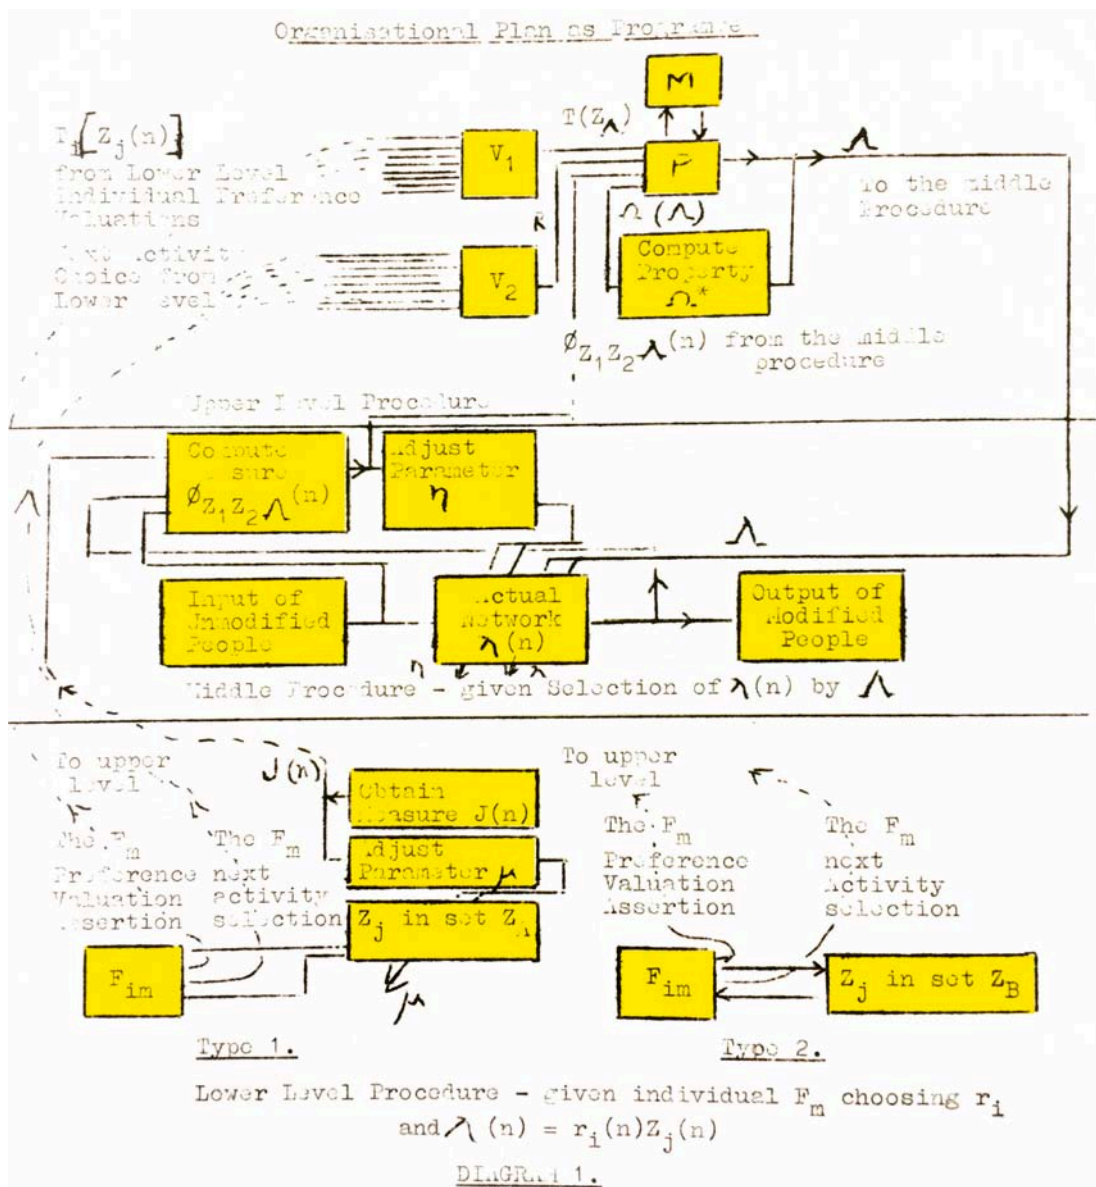 Organisational Plan as Programme
M
T(Z
[Z_j(n)]
from Lower Level
Individual Preference
Valuations
V_1
P
Λ
To the middle
Procedure
R
Ω (Λ)
Next Activity
Choice from
Lower Level
V_2
Compute
Property
Ω*
Ø_Z_1Z_2Λ(n) from the middle
procedure
Upper Level Procedure
Compute
Ø_Z_1Z_2Λ(n)
Adjust
Parameter
η
Λ
Input of
Unmodified
People
Actual
Network
λ(n)
Output of
Modified
People
η λ
Middle Procedure - given Selection of λ(n) by Λ
To upper
level
J(n)
Obtain
Measure J(n)
The F_m
Preference
Valuation
Assertion
The F_m
next
activity
selection
Adjust
Parameter μ
Z_j in set Z_A
μ
F_im
Type 1.
To upper
level
The F_m
Preference
Valuation
Assertion
The F_m
next
Activity
selection
F_im
Z_j in set Z_B
Type 2.
Lower Level Procedure - given individual F_m choosing r_i
and λ(n) = r_i(n)Z_j(n)
DIAGRAM 1.